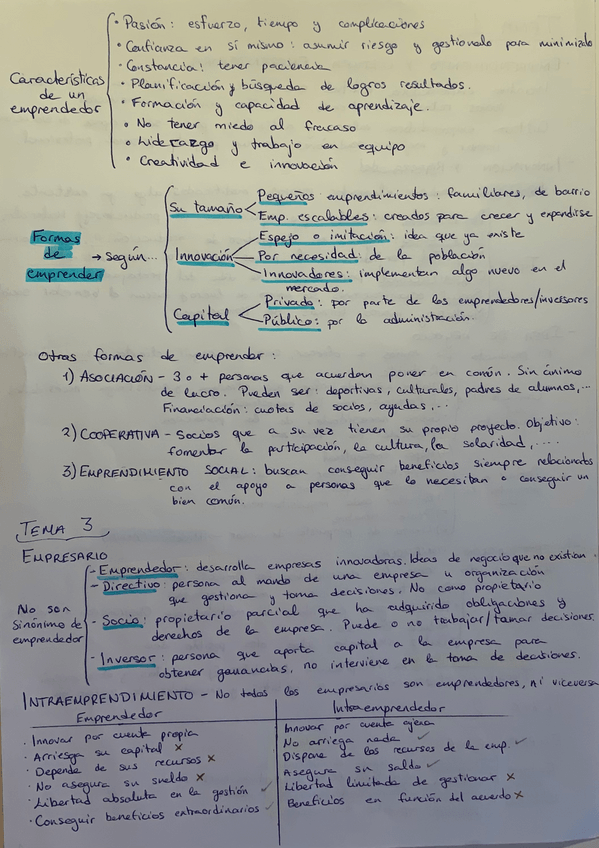 Características de un emprendedor
• Pasión: esfuerzo, tiempo y complicaciones
• Confianza en sí mismo: asumir riesgo y gestionalo para minimizalo
• Constancia: tener paciencia
• Planificación y búsqueda de logros resultados.
• Formación y capacidad de aprendizaje.
• No tener miedo al fracaso
• Liderazgo y trabajo en equipo
• Creatividad e innovación
Formas de emprender → según...
Su tamaño
Pequeños emprendimientos: familiares, de barrio
Emp. escalables: creados para crecer y expandirse
Innovación
Espejo o imitación: idea que ya existe
Por necesidad: de la población
Innovadores: implementan algo nuevo en el
mercado.
Capital
Privado: por parte de los emprendedores/inversores
Público: por la administración.
Otras formas de emprender:
1) ASOCIACIÓN - 3 o + personas que acuerdan poner en común. Sin ánimo
de lucro. Pueden ser: deportivas, culturales, padres de alumnos,...
Financiación: cuotas de socios, ayudas,...
2) COOPERATIVA - Socios que a su vez tienen su propio proyecto. Objetivo:
fomentar la participación, la cultura, la solaridad,.....
3) EMPRENDIMIENTO SOCIAL: buscan conseguir beneficios siempre relacionados
con el apoyo a personas que lo necesitan o conseguir un
bien común.
TEMA 3
EMPRESARIO
No son sinónimo de emprendedor
- Emprendedor: desarrolla empresas innovadoras. Ideas de negocio que no existían.
- Directivo: persona al mando de una empresa u organización
que gestiona y toma decisiones. No como propietario
- Socio: propietario parcial que ha adquirido obligaciones y
derechos de la empresa. Puede o no trabajar/tomar decisiones.
- Inversor: persona que aporta capital a la empresa para
obtener ganancias, no interviene en la toma de decisiones.
INTRAEMPRENDIMIENTO - No todos los empresarios son emprendedores, ni viceversa
Emprendedor
· Innovar por cuenta propia
· Arriesga su capital ×
· Depende de sus recursos ×
· No asegura su sueldo ×
· Libertad absoluta en la gestión ✓
· Conseguir beneficios extraordinarios ✓
Intraemprendedor
Innovar por cuenta ajena
No arriega nada ✓
Dispone de los recursos de la emp. ✓
Asegura su saldo ✓
Libertad limitada de gestionar ×
Beneficios en función del acuerdo ×